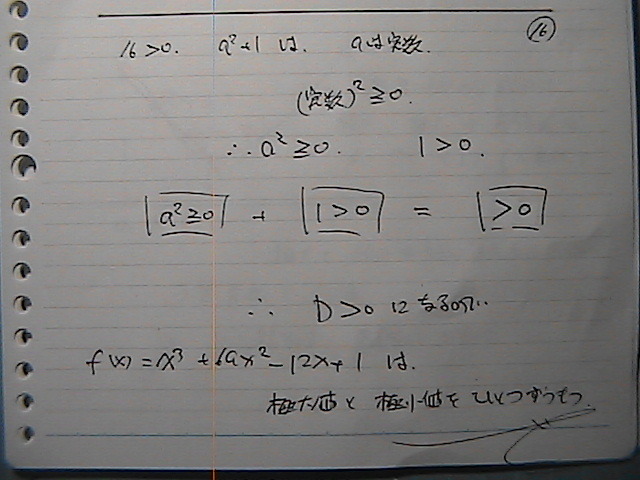 ⑯
16>0. a²+1 は. aは実数.
(実数)²≧0.
∴a²≧0. 1>0.
a²≧0 + 1>0 = >0
∴ D>0 になるので..
f(x)=x³+6ax²-12x+1 は.
極大値と極小値をひとつずつもつ